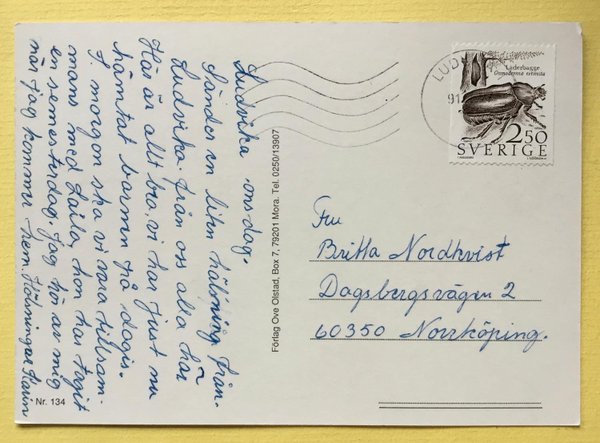 Ludvika, onsdag.
Sänder en liten hälsning från
Ludvika. Från oss alla här
Här är allt bra, vi har just nu
hämtat barnen på dagis.
I morgon ska vi vara tillsam-
mans med Laila, hon har tagit
en semesterdag. Jag hör av mig
när jag kommer hem. Hälsningar Karin
Nr. 134
Förlag Ove Olstad, Box 7, 79201 Mora. Tel. 0250/13907
LUD
91
Läderbagge
Osmoderma eremita
2.50
SVERIGE
Fru
Britta Nordkvist
Dagsbergsvägen 2
60350 Norrköping.